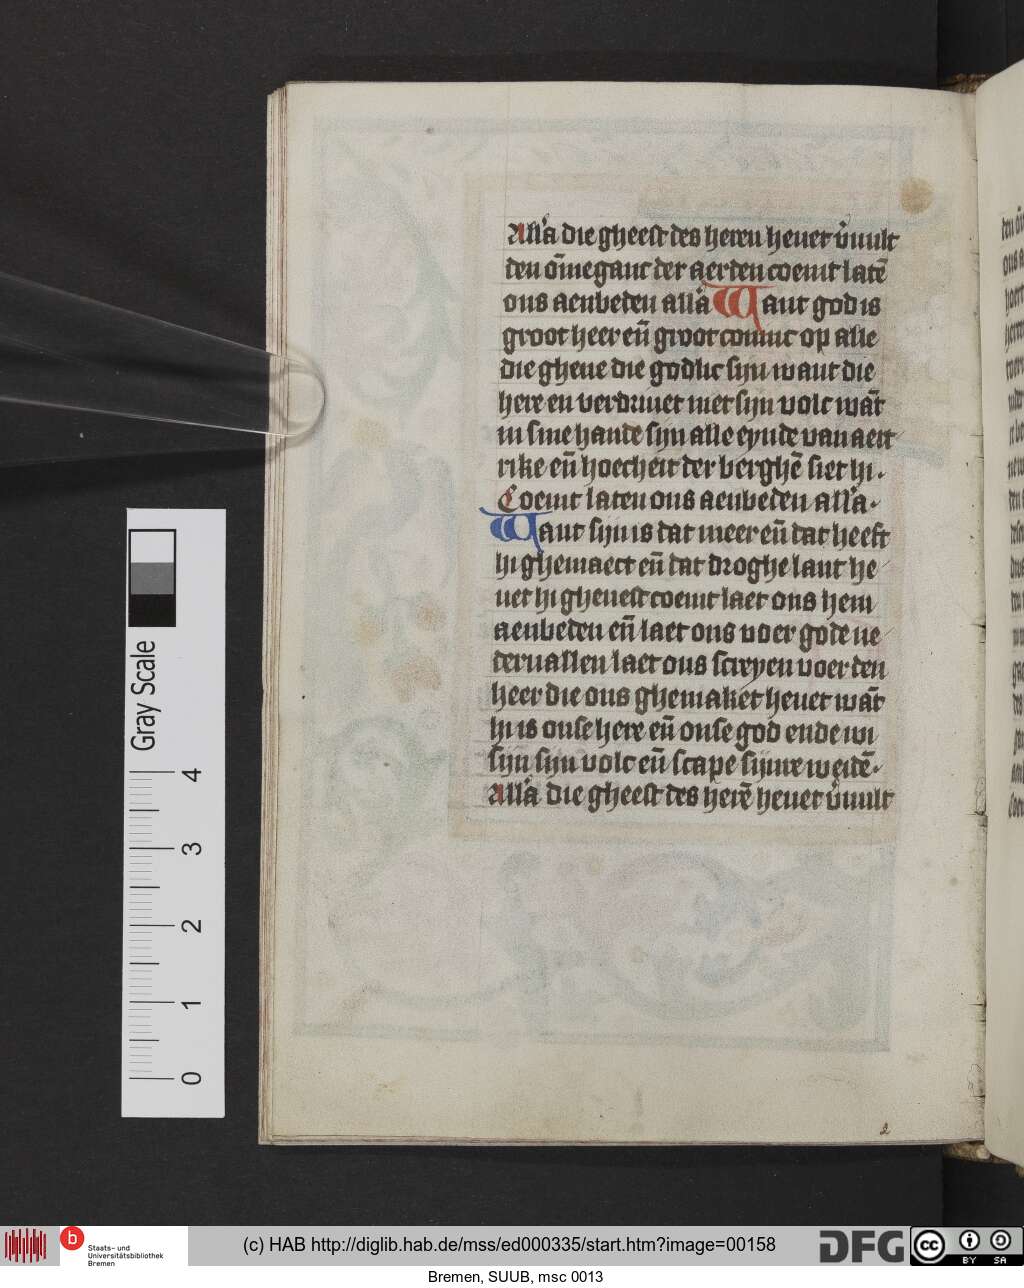 Alla die gheest des heren heuet v̄uult
den ōmeganc der aerden coemt latē
ons aenbeden alla Want god is
groot heer en̄ groot coninc op alle
die gheue die godlic sijn want die
here en verdriuet niet sijn volc wāt
in sine hande sijn alle eynde van aert
rike en̄ hoecheit der berghē siet hi.
Coemt laten ons aenbeden alla.
Want sijn is dat meer en̄ dat heeft
hi ghemaect en̄ dat droghe lant he
uet hi gheuest coemt laet ons hem
aenbeden en̄ laet ons voer gode ne
deruallen laet ons screyen voer den
heer die ons ghemaket heuet wāt
hi is onse here en̄ onse god ende wi
sijn sijn volc en̄ scape sijnre weidē.
Alla die gheest des herē heuet v̄uult
2
Gray Scale
4
3
2
1
0
b
Staats- und
Universitätsbibliothek
Bremen
(c) HAB http://diglib.hab.de/mss/ed000335/start.htm?image=00158
DFG
cc
BY SA
Bremen, SUUB, msc 0013